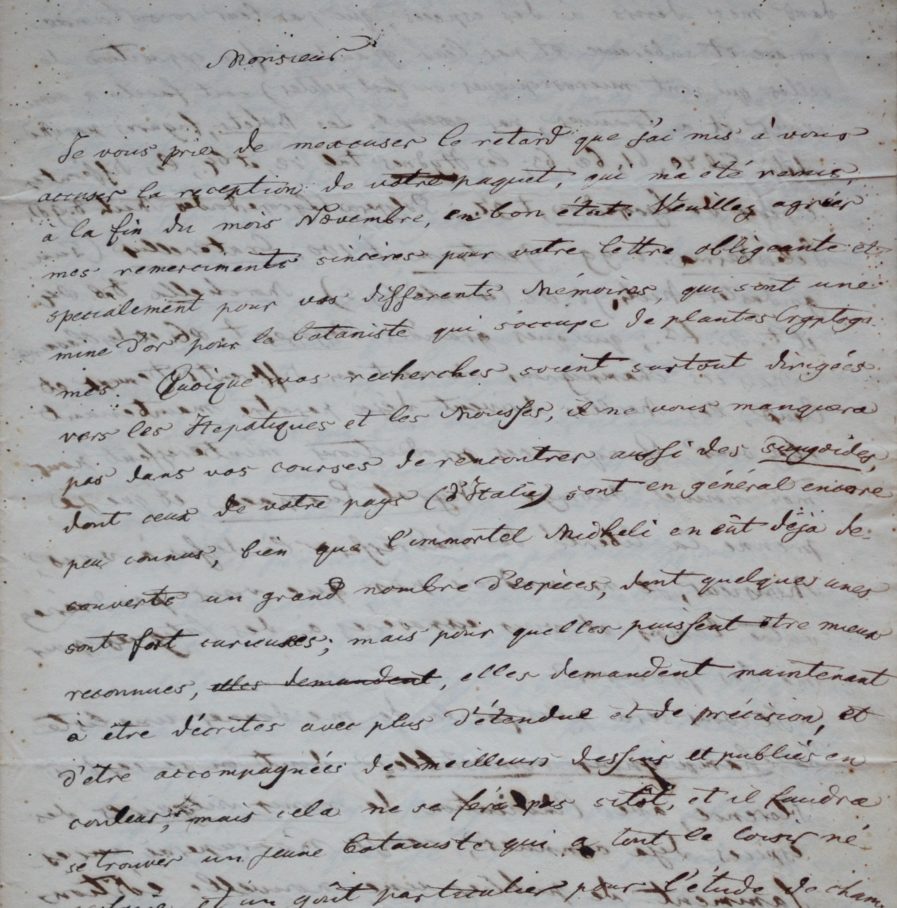 Monsieur
Je vous prie de m'excuser le retard que j'ai mis à vous
accuser la reception de votre paquet, qui m'a été remis,
à la fin du mois Novembre, en bon état. Veuillez agréer
mes remerciments sincères pour votre lettre obligeante et
specialement pour vos differents Mémoires, qui sont une
mine d'or pour le botaniste qui s'occupe de plantes Cryptoga-
mes. Quoique vos recherches soient surtout dirigées
vers les Hepatiques et les Mousses, il ne vous manquera
pas dans vos courses de rencontrer aussi des fungoides,
dont ceux de votre pays (d'Italie) sont en général encore
peu connus, bien que l'immortel Micheli en eût déjà dé-
couverts un grand nombre d'espèces, dont quelques unes
sont fort curieuses; mais pour quelles puissent être mieux
reconnues, elles demandent, elles demandent maintenant
à être décrites avec plus d'étendue et de précision, et
d'être accompagnées de meilleurs dessins et publiés en
couleur, mais cela ne se fera pas sitôt, et il faudra
se trouver un jeune botaniste qui a tout le loisir né-
et un goût particulier pour l'étude de cham-